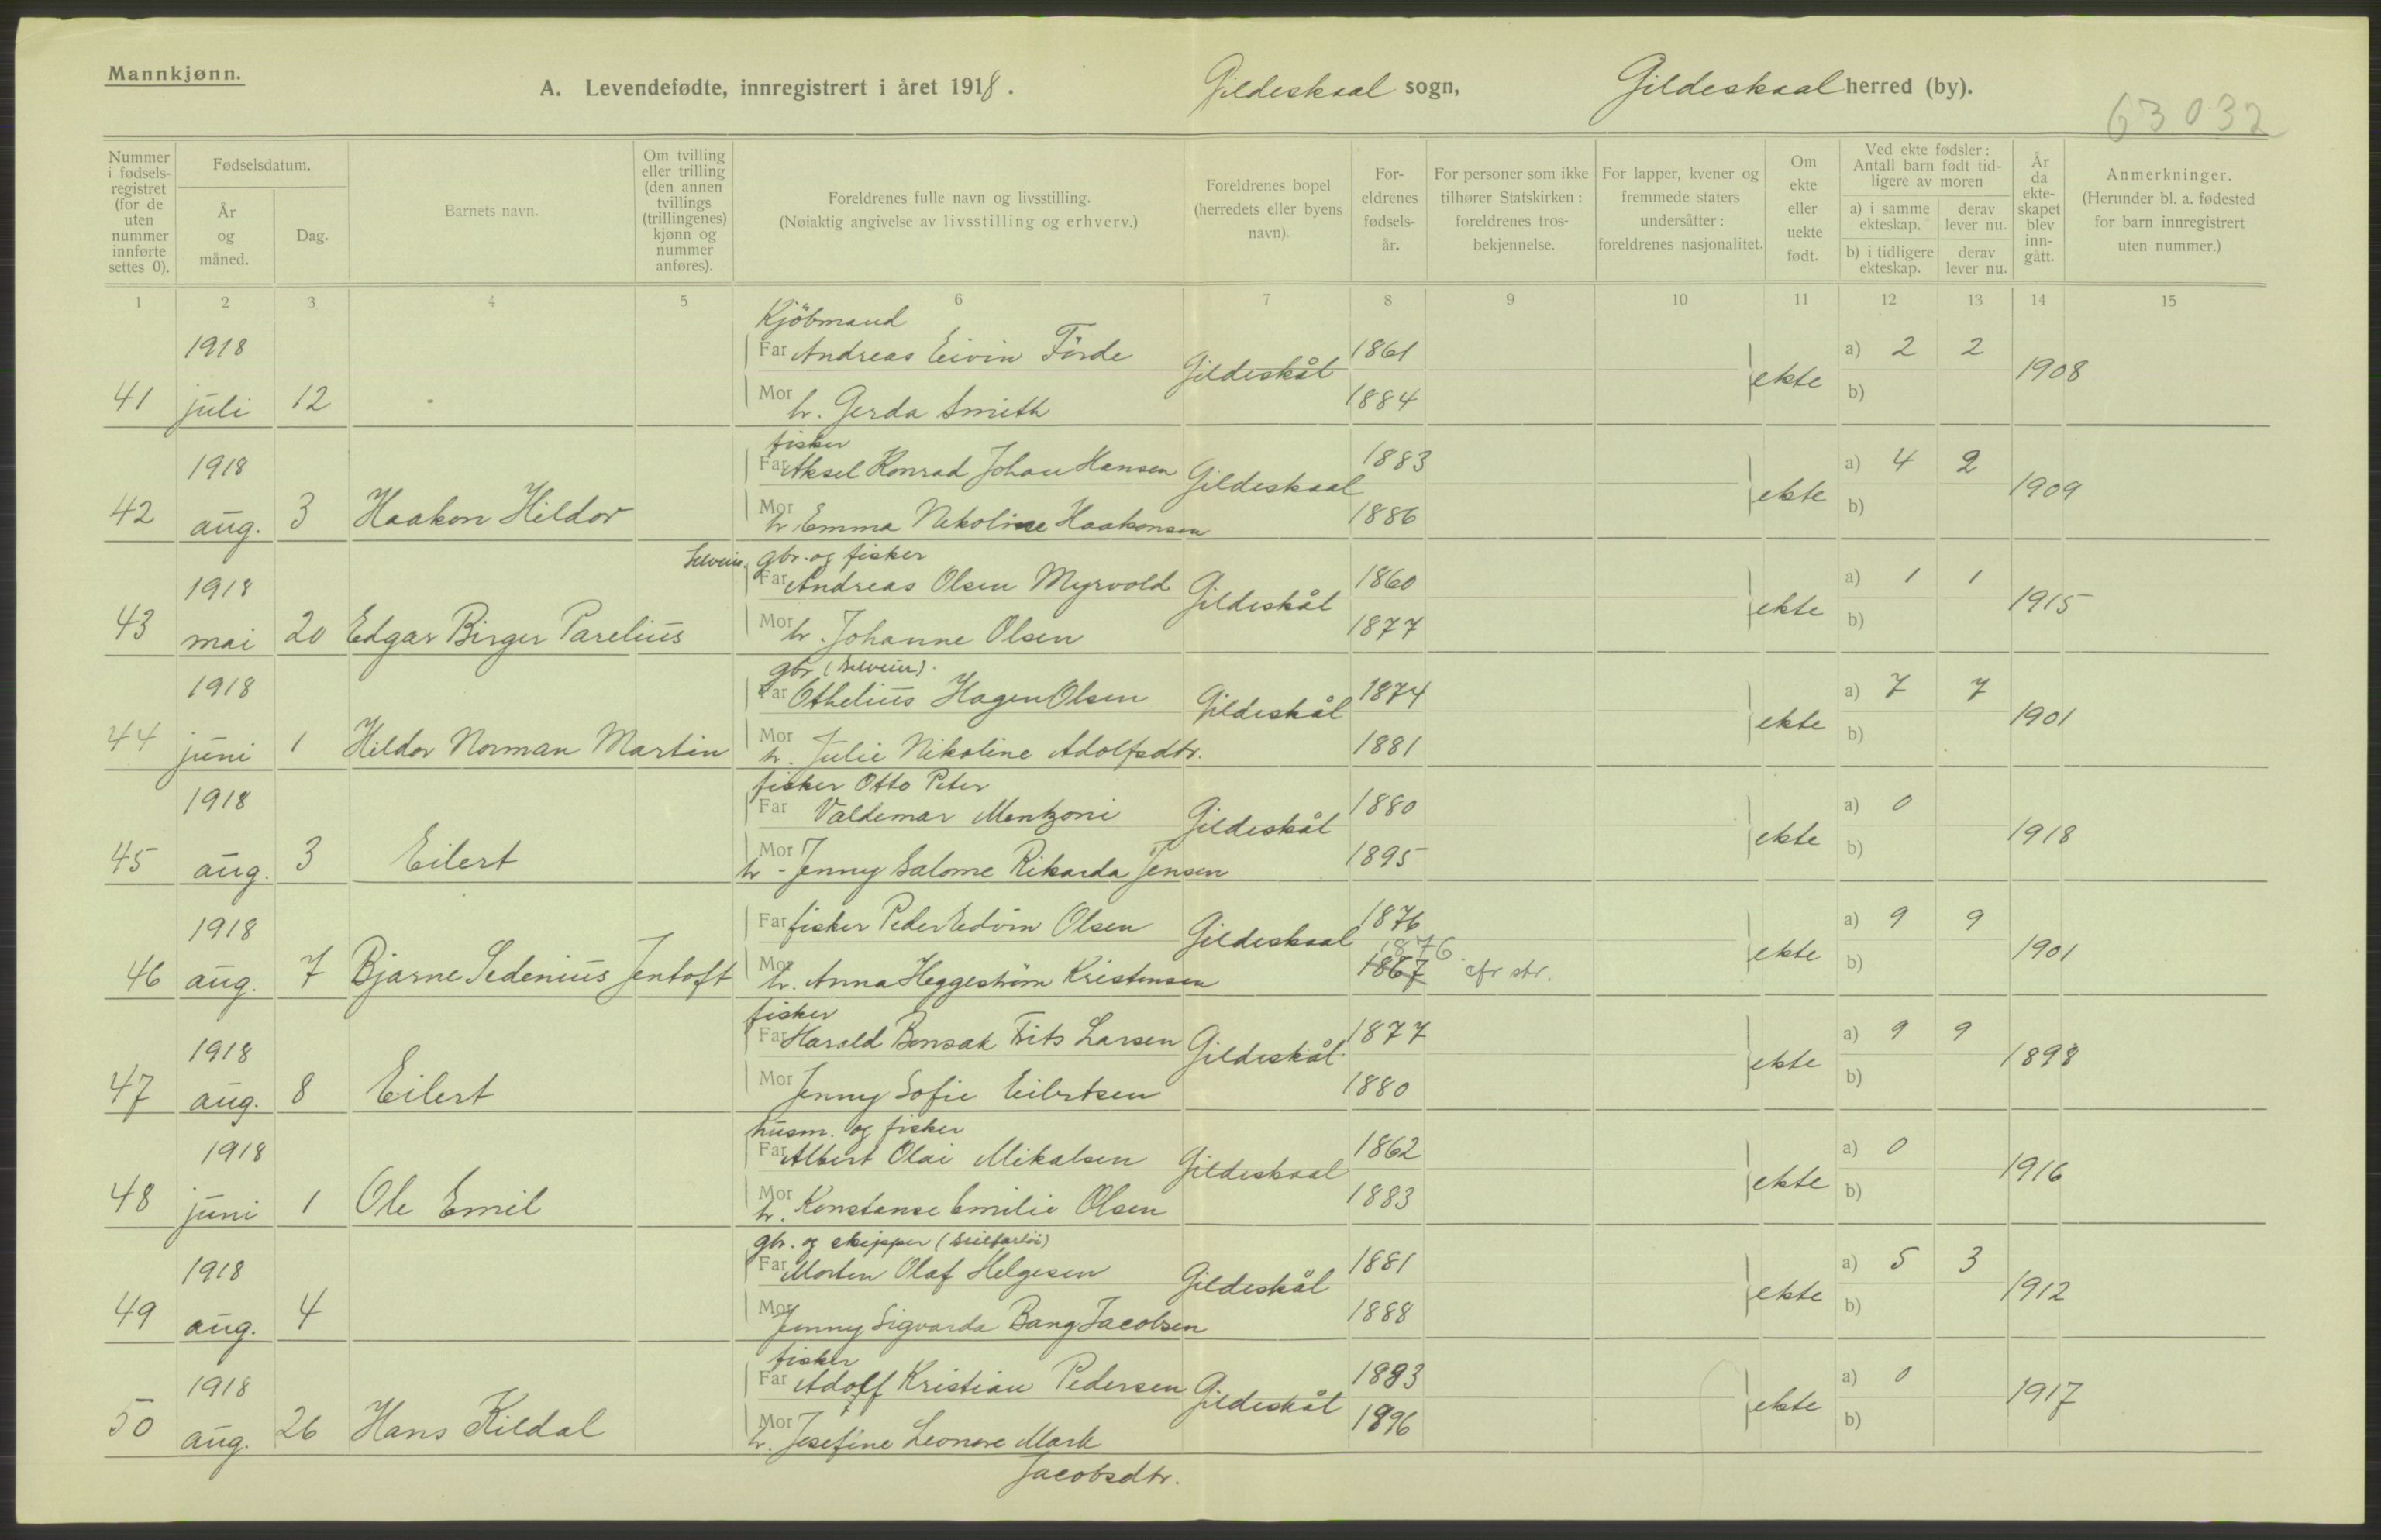 Mannkjønn.
A. Levendefødte, innregistrert i året 1918. Gildeskaal sogn, Gildeskaal herred (by).
63032
Nummer i fødsels-registret (for de uten nummer innførte settes 0).
Fødselsdatum.
År og måned.
Dag.
Barnets navn.
Om tvilling eller trilling (den annen tvillings (trillingenes) kjønn og nummer anføres).
Foreldrenes fulle navn og livsstilling.
(Nøiaktig angivelse av livsstilling og erhverv.)
Foreldrenes bopel (herredets eller byens navn).
For-eldrenes fødsels-år.
For personer som ikke tilhører Statskirken: foreldrenes tros-bekjennelse.
For lapper, kvener og fremmede staters undersåtter: foreldrenes nasjonalitet.
Om ekte eller uekte født.
Ved ekte fødsler: Antall barn født tid-ligere av moren
a) i samme ekteskap. derav lever nu.
b) i tidligere ekteskap. derav lever nu.
År da ekte-skapet blev inn-gått.
Anmerkninger. (Herunder bl. a. fødested for barn innregistrert uten nummer.)
1 2 3 4 5 6 7 8 9 10 11 12 13 14 15
Kjöbmand
1918 Far Andreas Eivin Förde Gildeskål 1861 ekte a) 2 2 1908
41 juli 12 Mor h. Gerda Smith 1884 b)
fisker
1918 Far Aksel Konrad Johan Hansen Gildeskaal 1883 ekte a) 4 2 1909
42 aug. 3 Haakon Hildor Mor h. Emma Nikoline Haakonsen 1886 b)
Selveier. gbr. og fisker
1918 Far Andreas Olsen Myrvold Gildeskål 1860 ekte a) 1 1 1915
43 mai 20 Edgar Birger Parelius Mor h. Johanne Olsen 1877 b)
gbr (selveier).
1918 Far Othelius Hagen Olsen Gildeskål 1874 ekte a) 7 7 1901
44 juni 1 Hildor Norman Martin Mor h. Julie Nikoline Adolfsdtr. 1881 b)
fisker Otto Peter
1918 Far Valdemar Mentzoni Gildeskål 1880 ekte a) 0 1918
45 aug. 3 Eilert Mor h - Jenny Salome Rikarda Jensen 1895 b)
1918 Far fisker Peder Edvin Olsen Gildeskaal 1876 ekte a) 9 9 1901
1876
46 aug. 7 Bjarne Sedenius Jentoft Mor h. Anna Heggeström Kristensen 1867 cfr str. b)
fisker
1918 Far Harald Bonsak Frits Larsen Gildeskål 1877 ekte a) 9 9 1898
47 aug. 8 Eilert Mor Jenny Sofie Eilertsen 1880 b)
husm. og fisker
1918 Far Albert Olai Mikalsen Gildeskaal 1862 ekte a) 0 1916
48 juni 1 Ole Emil Mor h. Konstanse Emilie Olsen 1883 b)
gbr. og skipper (seilfartöi)
1918 Far Morten Olaf Helgesen Gildeskål 1881 ekte a) 5 3 1912
49 aug. 4 Mor Jenny Sigvarda Bang Jacobsen 1888 b)
fisker
1918 Far Adolf Kristian Pedersen Gildeskål 1893 ekte a) 0 1917
50 aug. 26 Hans Kildal Mor h. Josefine Leonore Mark 1896 b)
Jacobsdtr.